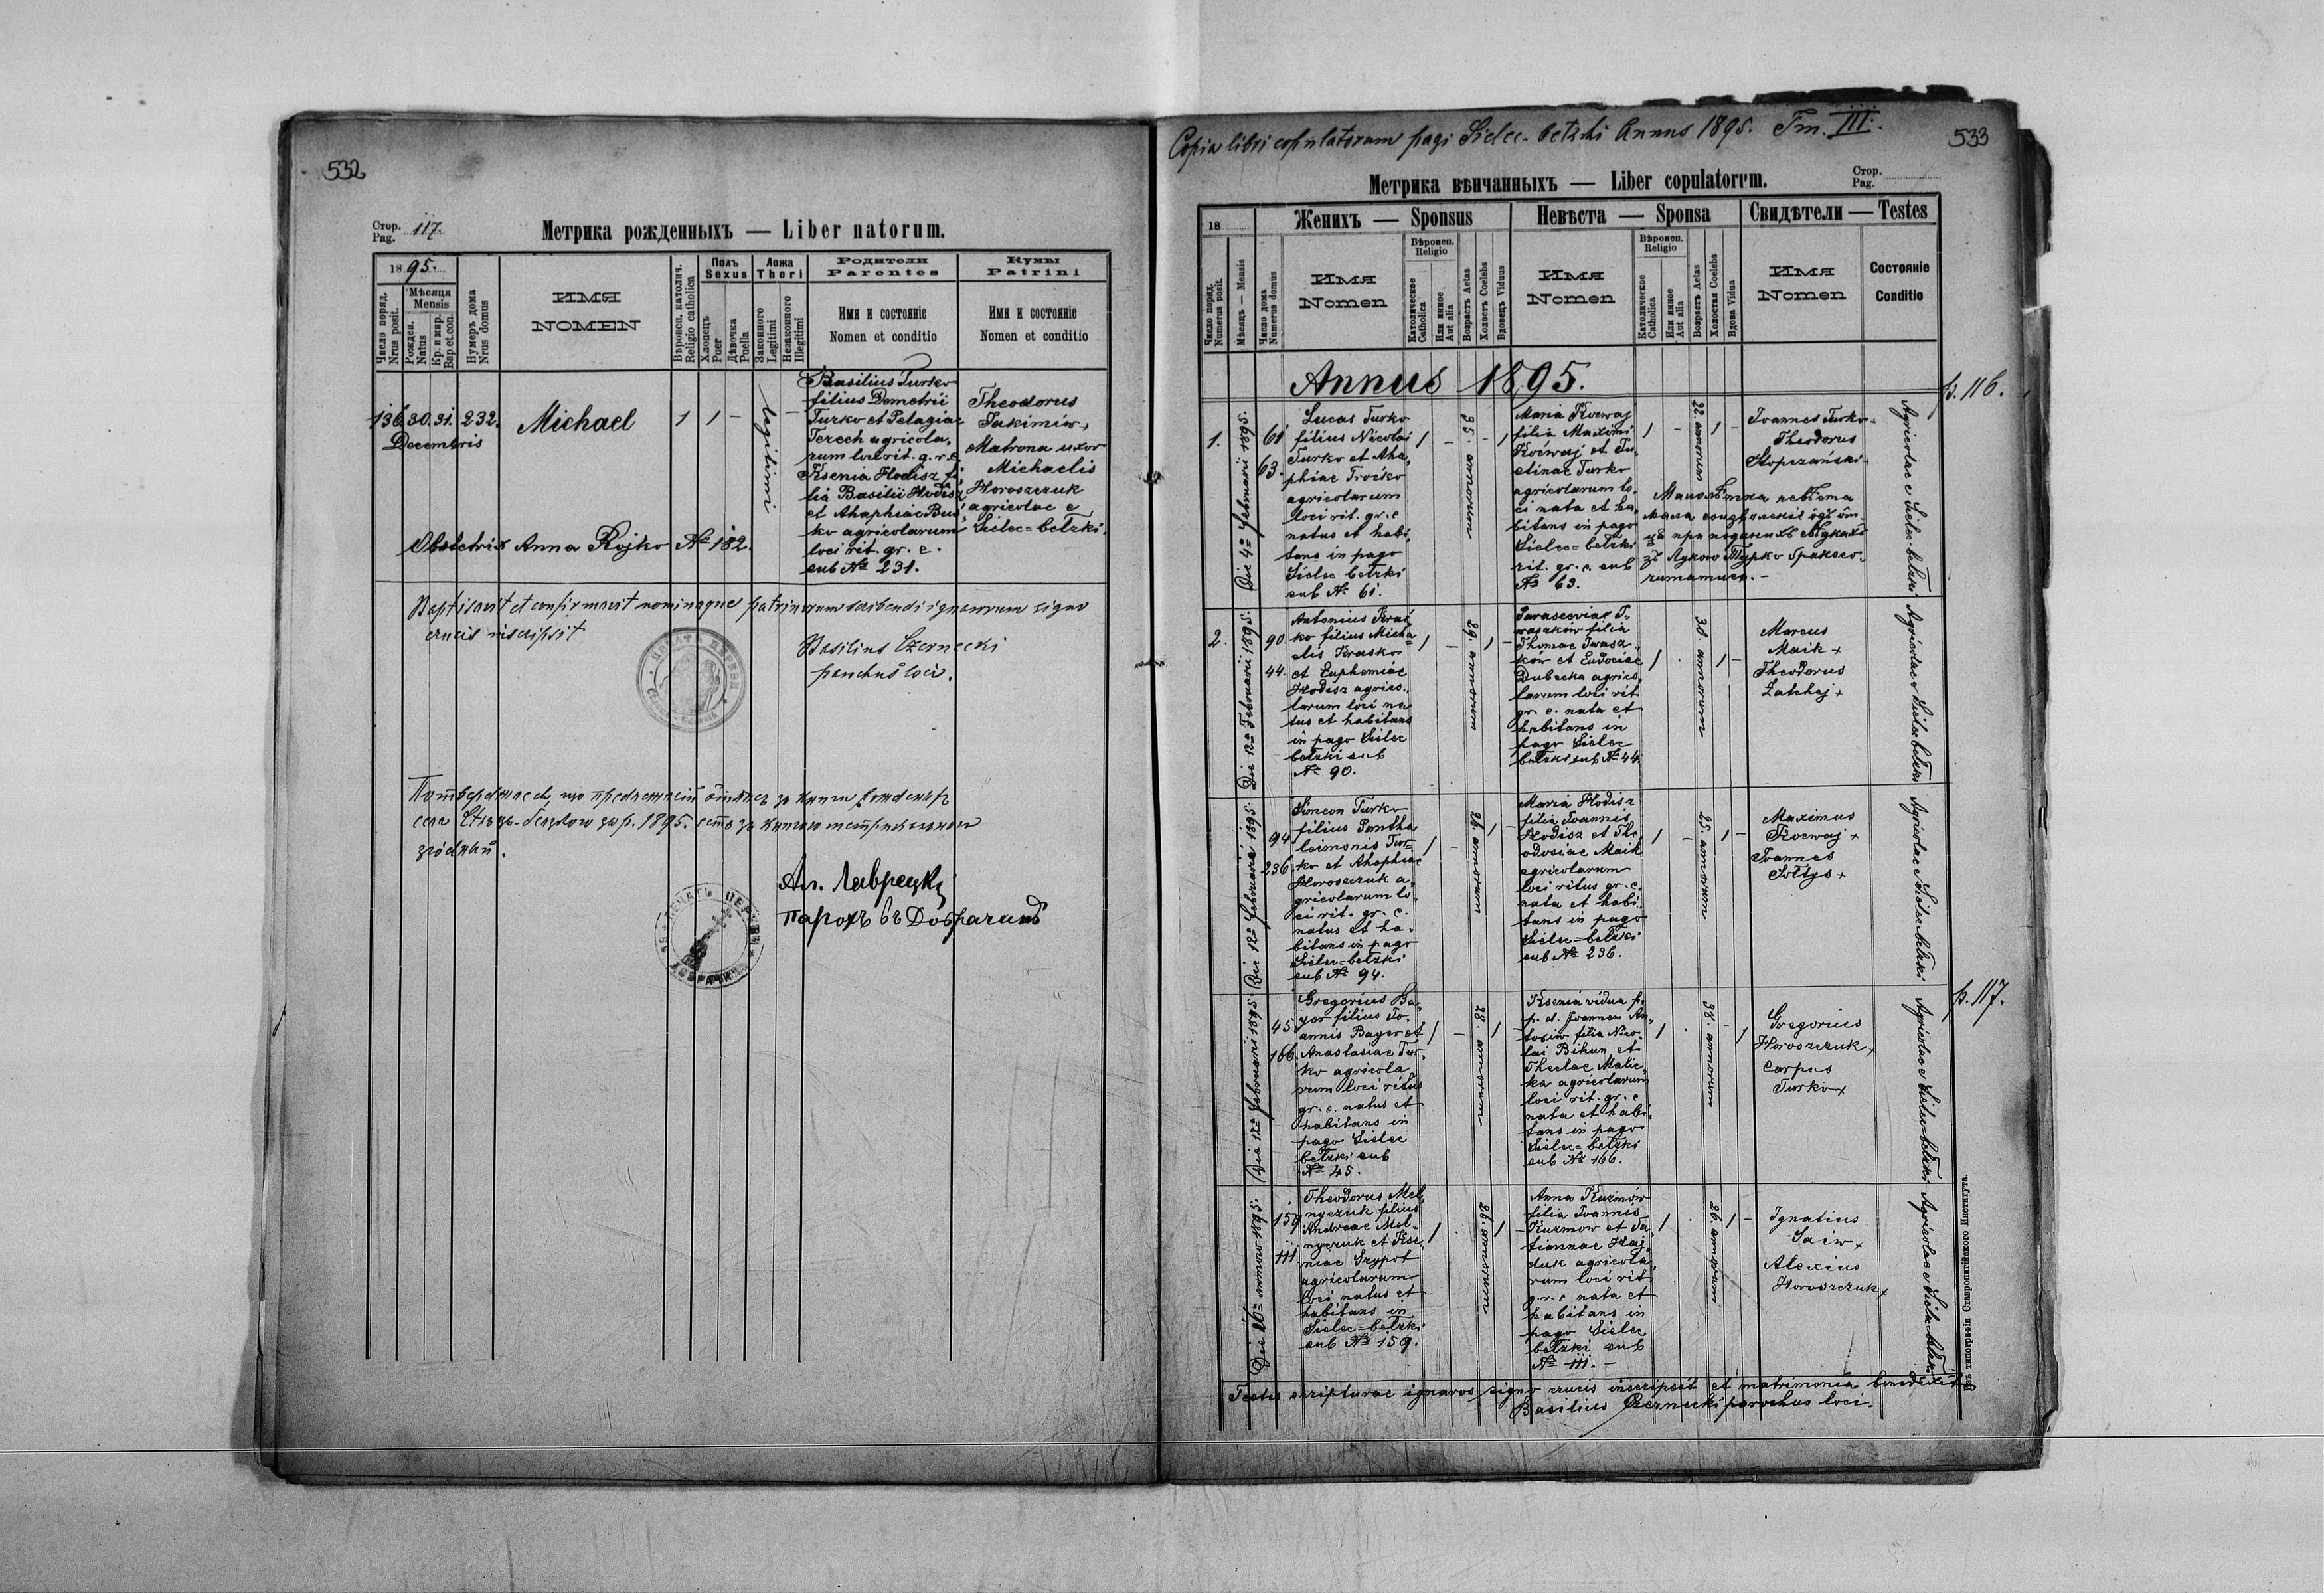 532
Стор.
Pag. 117.
Метрика рожденныхъ — Liber natorum.
1895.
Число поряд.
Nrus posit.
Мѣсяця
Mensis
Рожден.
Natus
Кр. и мир.
Bap.et.con.
Нумеръ дома
Nrus domus
ИМЯ
NOMEN
Вѣроисп. католич.
Religio catholica
Полъ
Sexus
Хлопецъ
Puer
Дѣвочка
Puella
Ложа
Thori
Законного
Legitimi
Незаконного
Illegitimi
Родители
Parentes
Имя и состояніе
Nomen et conditio
Кумы
Patrini
Имя и состояніе
Nomen et conditio
136. 30. 31. 232.
Decembris
Michael
1 1 –
legitimi
–
Basilius Turko
filius Demetrii
Turko et Pelagiae
Terech agricola,
rum loci rit. g. r. c.
Ksenia Hodisz fi,
lia Basilii Hodisz
et Ahaphiae Bus,
ko agricolarum
loci rit. gr. c.
sub № 231.
Theodorus
Jakimiw,
Matrona uxor
Michaelis
Horoszczuk
agricolae e
Sielec=bełzki.
Obstetrix Anna Rojko № 182.
Baptisavit et confirmavit nominaque patrinorum scribendi ignarum signo
crucis inscripsit
Basilius Czernecki
parochus loci.
Ал. Лаврецкій
парохъ въ Добрачинѣ
Copia libri copulatorum pagi Sielec-bełzki Annus 1895. Tm. III.
533
Метрика вѣнчанныхъ — Liber copulatorum.
Стор.
Pag.
18
Число поряд.
Numerus posit.
Мѣсяць — Mensis
Число дома
Numerus domus
Женихъ — Sponsus
ИМЯ
Nomen
Вѣроисп.
Religio
Католическое
Catholica
Или инное
Aut alia
Возрастъ Aetas
Холостъ Coelebs
Вдовецъ Viduus
Невѣста — Sponsa
ИМЯ
Nomen
Вѣроисп.
Religio
Католическое
Catholica
Или инное
Aut alia
Возрастъ Aetas
Холостая Coelebs
Вдова Vidua
Свидѣтели — Testes
ИМЯ
Nomen
Состояніе
Conditio
Annus 1895.
p. 116.
1.
Die 4ª Februarii 1895.
61
63.
Lucas Turko
filius Nicolai
Turko et Aha,
phiae Troćko
agricolarum
loci rit. gr. c
natus et habi
tans in pago
Sielec bełzki
sub № 61.
1 – 35. annorum – 1
Maria Kocwaj
filia Maximi
Kocwaj et Ju,
stinae Turko
agricolarum lo,
ci nata et ha,
bitans in pago
Sielec=bełzki
rit. gr. c. sub
№ 63.
1 – 22. annorum 1 –
Joannes Turko
Theodorus
Stopczański
Agricolae e Sielec-bełzki
2.
Die 12ª Februarii 1895.
90
44.
Antonius Kraś
ko filius Micha
elis Krasko
et Euphemiae
Hodisz agrico,
larum loci na
tus et habitans
in pago Sielec
bełzki sub
№ 90.
1 – 29. annorum 1 –
Parascevia I,
waszków filia
Thomae Iwasz,
ków et Eudociae
Dubecka agrico,
larum loci rit
gr. c. nata et
habitans in
pago Sielec
bełzki sub № 44.
1 . 30. annorum 1 –
Marcus
Maik +
Theodorus
Zatchej +
Agricolae e Sielec bełzki
Die 12ª Februarii 1895.
94
236
Simeon Turko
filius Pantha
leimonis Tur=
ko et Ahaphiae
Horoszczuk a,
gricolarum lo,
ci rit. gr. c.
natus et ha,
bitans in pago
Sielec=bełzki
sub № 94.
1 – 26. annorum 1 –
Maria Hodisz
filia Joannis
Hodisz et The,
odosiae Maik
agricolarum
loci ritus gr. c.
nata et habi,
tans in pago
Sielec=bełzki
sub № 236.
1 – 25. annorum 1 –
Maximus
Kocwaj +
Joannes
Sołtys +
Agricolae e Sielec bełzki
p. 117.
Die 12ª Februarii 1895.
45
166
Gregorius Ba,
yer filius Jo,
annis Bayer et
Anastasiae Tur,
ko agricola,
rum loci ritus
gr. c. natus et
habitans in
pago Sielec
bełzki sub
№ 45.
1 – 28. annorum 1 –
Ksenia vidua p.
p. d. Joannem An,
tosiw filia Nico,
lai Bihun et
Theclae Malic,
ka agricolarum
loci rit. gr. c
nata et habi,
tans in pago
Sielec=bełzki
sub № 166.
1 . 38. annorum – 1
Gregorius
Horoszczuk +
Carpus
Turko +
Agricolae e Sielec=bełzki
159
111
Theodorus Mel,
nyczuk filius
Andreae Mel,
nyczuk et Kse,
niae Szypot
agricolarum
loci natus et
habitans in
Sielec=bełzki
sub № 159.
1 . 26. annorum 1
Anna Kuzmów
filia Joannis
Kuzmow et Ta,
tiannae Haj,
duk agricola,
rum loci rit
gr. c nata et
habitans in
pago Sielec
bełzki sub
№ 111. –
1 . 26. annorum 1 –
Ignatius
Saiw +
Alexius
Horoszczuk +
Agricolae e Sielec bełzki
Testes skripturae ignaros signo crucis inscripsit et matrimonia benedixit
Basilius Czernecki parochus loci.
Изъ типографіи Ставропигійского Института.